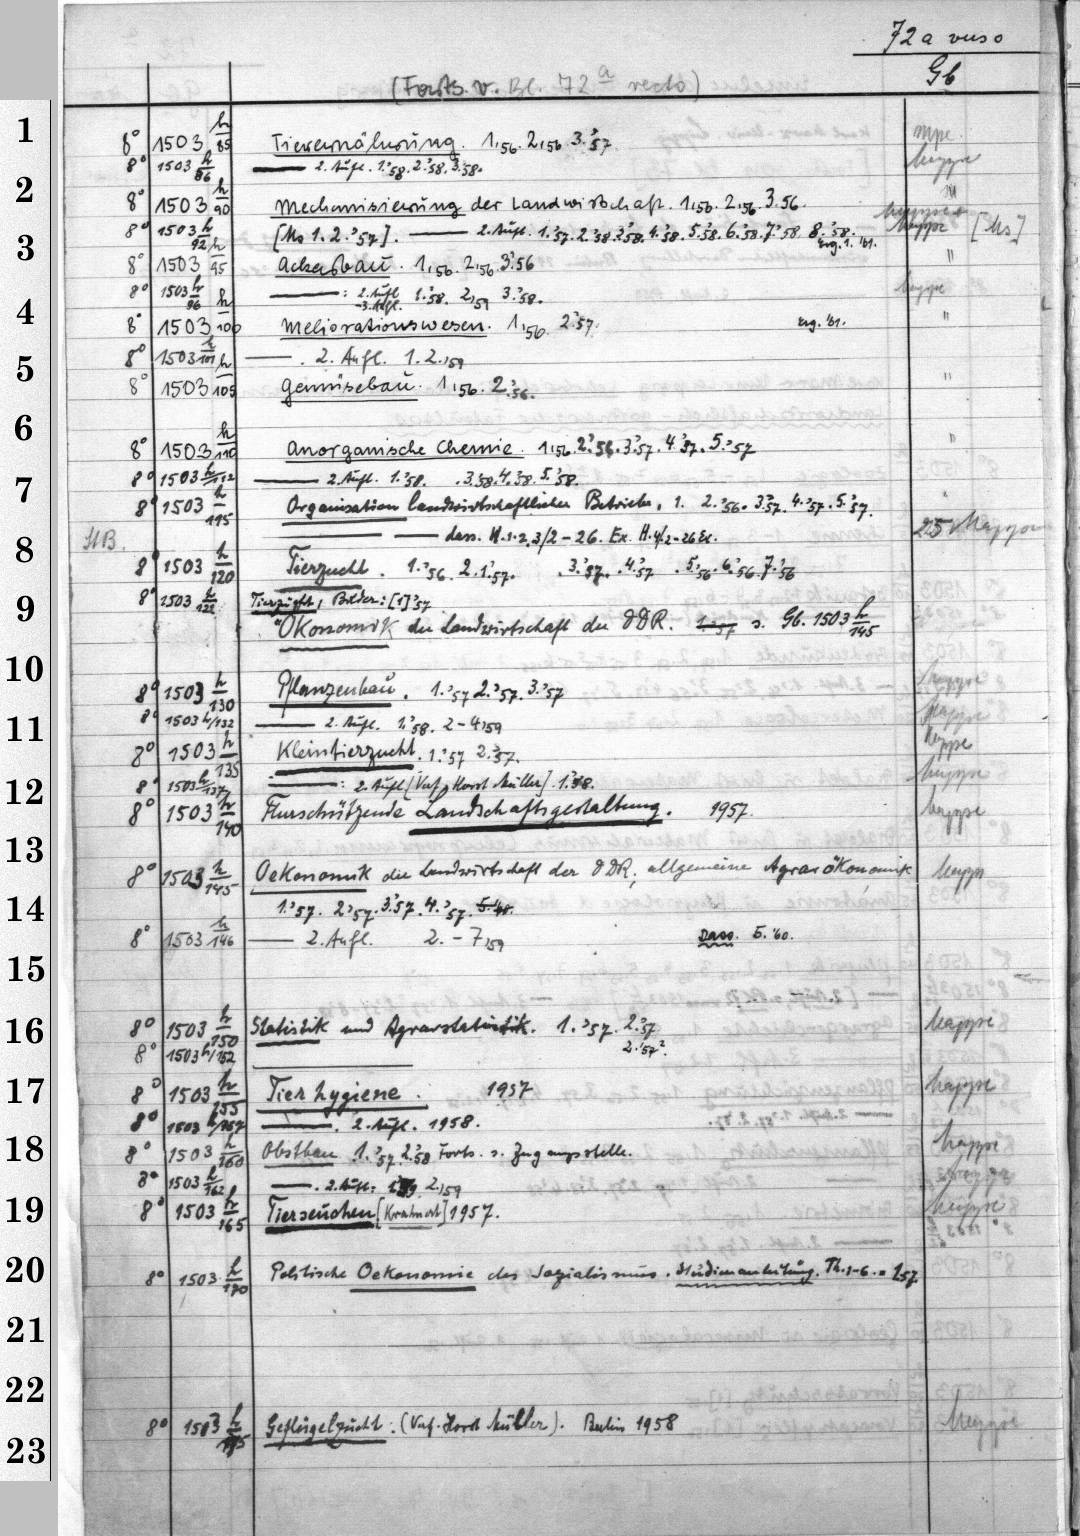 72a verso
Gb
(Forts. v. Bl. 72 a recto)
1
8° 1503 h/85 Tierernährung. 1,56. 2,56 3.'57 mpe.
8° 1503 h/86 —— 2. Aufl. 1.'58. 2.'58. 3.'58. happe
2
8° 1503 h/90 Mechanisierung der Landwirtschaft. 1,56. 2,56. 3.56. "
8° 1503 h/92 [Ms 1. 2.'57]. —— 2. Aufl. 1.'57. 2.'58. 3.'58. 4.'58. 5.'58. 6.'58. 7.'58. 8.'58. [Ms]
Erg. 1. '61.
3
8° 1503 h/95 Ackerbau. 1,56. 2,56. 3.'56 "
8° 1503 h/96 —— : 2. Aufl. 1.'58. 2,59 3.'58. happe
-3. Aufl.
4
8° 1503 h/100 Meliorationswesen. 1,56. 2.'57. Erg. '61. "
8° 1503 h/101 —— . 2. Aufl. 1. 2.,59
5
8° 1503 h/105 Gemüsebau. 1,56. 2.'56. "
6
8° 1503 h/110 Anorganische Chemie. 1,56. 2.'56. 3.'57. 4.'57. 5.'57 "
7
8° 1503 h/112 —— 2. Aufl. 1.'58. .3.'58. 4.'58. 5.'58.
8° 1503 h/115 Organisation landwirtschaftlicher Betriebe, 1. 2.'56. 3.'57. 4.'57. 5.'57. "
8
—— —— dass. H. 1. 2. 3/2-26. Ex. H. 4/2-26 Ex. 25 Mappen
8 1503 h/120 Tierzucht. 1.'56. 2. 1.'57. .3.'57. .4.'57 .5.'56. 6.'56. 7.'56
9
8° 1503 h/122 Tierzucht, Bilder: [1]'57
Ökonomik der Landwirtschaft der DDR. 1.'57 s. Gb. 1503 h/145
10
8° 1503 h/130 Pflanzenbau. 1.'57 2.'57. 3.'57 happe
11
8° 1503 h/132 —— 2. Aufl. 1.'58. 2-4,59 happe
8° 1503 h/135 Kleintierzucht. 1.'57 2.'57. happe
12
8° 1503 h/137 —— : 2. Aufl [Verf. Horst Müller] 1.'58. happe
8° 1503 h/140 Flurschützende Landschaftsgestaltung. 1957. happe
13
8° 1503 h/145 Oekonomik die Landwirtschaft der DDR, allgemeine Agrarökonomik happe
14
1.'57. 2.'57. 3.'57. 4.'57.
8° 1503 h/146 —— 2. Aufl. 2.-7,59 Dass. 5.'60.
15
16
8° 1503 h/150 Statistik und Agrarstatistik. 1.'57. 2.'57 happe
8° 1503 h/152 2.'57².
17
8° 1503 h/155 Tierhygiene. 1957 happe
8° 1503 h/157 —— . 2. Aufl. 1958.
18
8° 1503 h/160 Obstbau 1.'57. 2.'58 Forts. s. Zugangsstelle. happe
8° 1503 h/162 —— . 2. Aufl: 2.,59
19
8° 1503 h/165 Tierseuchen 1957. happe
20
8° 1503 h/170 Politische Oekonomie des Sozialismus. Studienanleitung. Th. 1-6.
21
22
8° 1503 h Geflügelzucht. (Verf. Horst Müller). Berlin 1958 happe
23